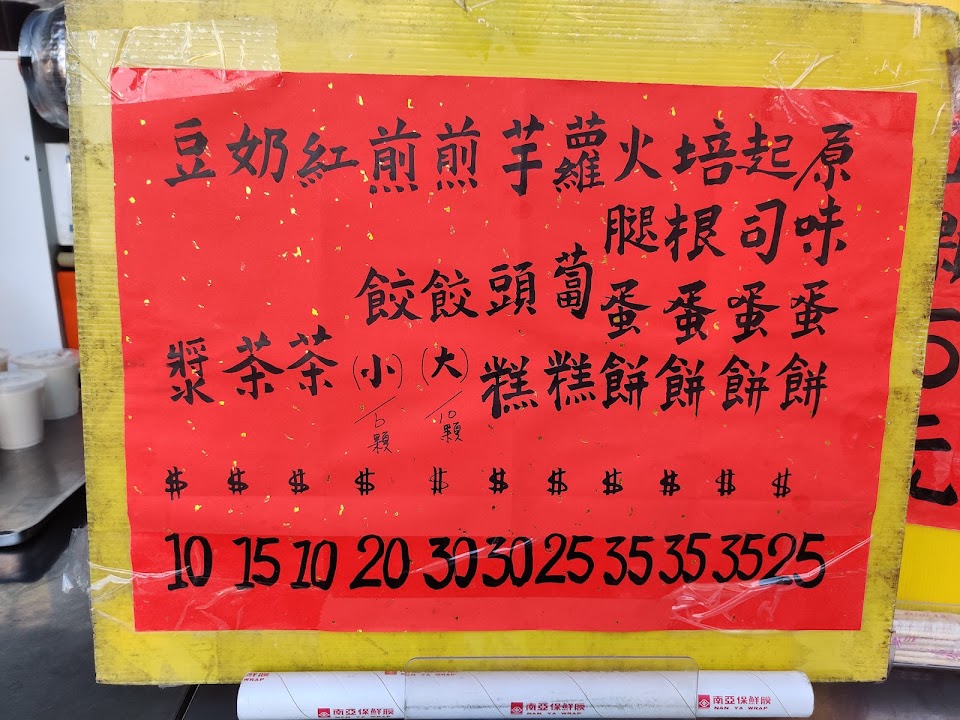 原味蛋餅 $ 25
起司蛋餅 $ 35
培根蛋餅 $ 35
火腿蛋餅 $ 35
蘿蔔糕 $ 25
芋頭糕 $ 30
煎餃(大)/10顆 $ 30
煎餃(小)/6顆 $ 20
紅茶 $ 10
奶茶 $ 15
豆漿 $ 10
南亞保鮮膜
WRAP
南亞保鮮膜
NAN YA WRAP
南亞保鮮膜
NAN YA WRAP